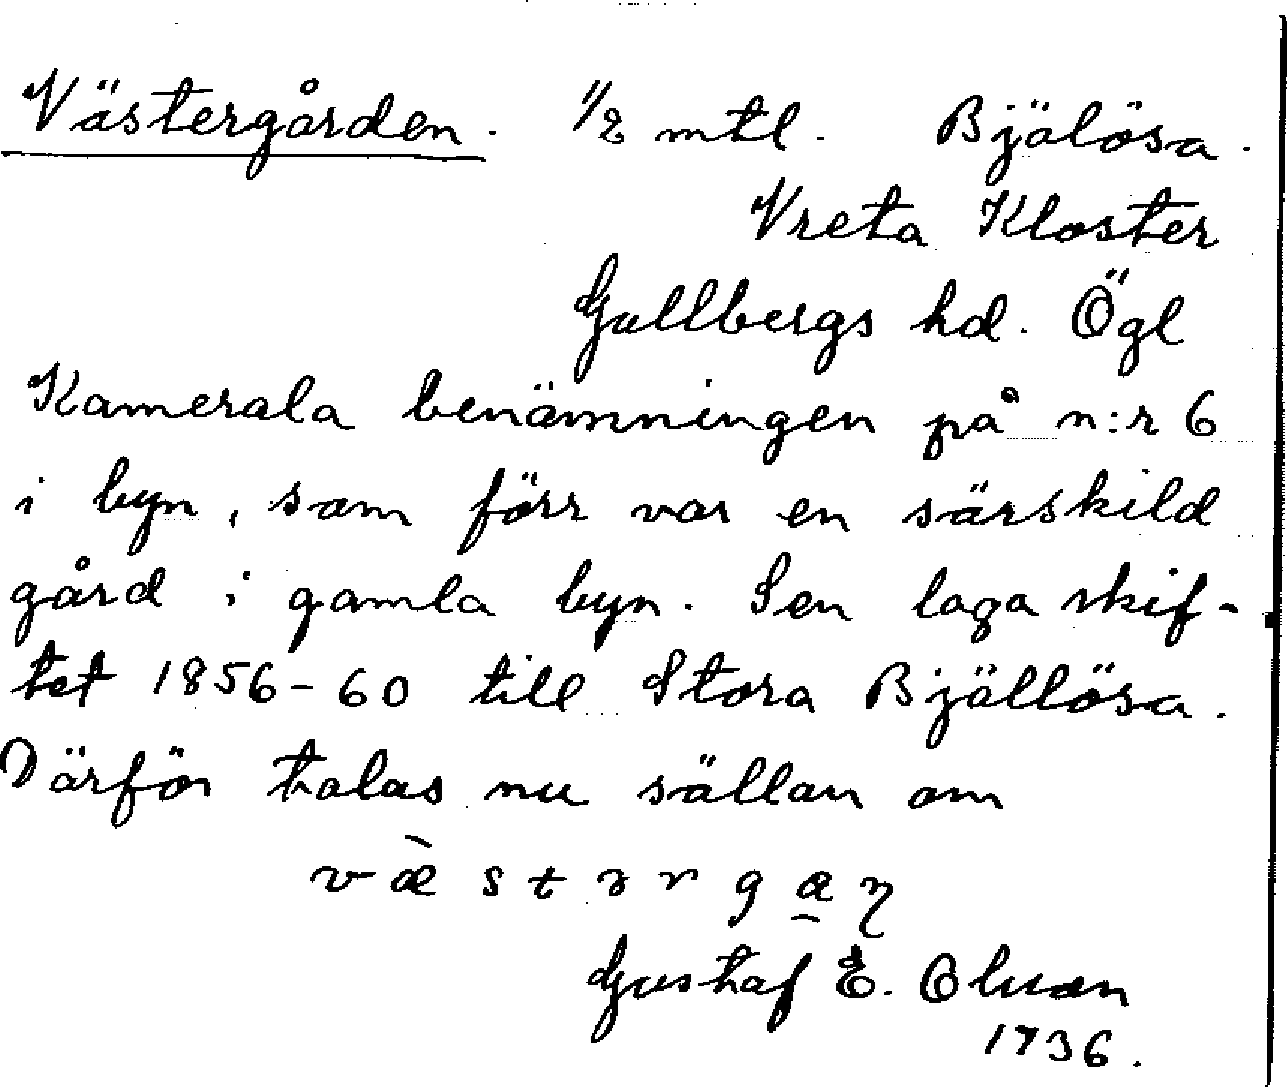 Västergården. 1/2 mtl. Bjälösa.
Vreta Kloster
Gullbergs hd. Ögl
Kamerala benämningen på n:r 6
i byn, som förr var en särskild
gård i gamla byn. Sen laga skif-
tet 1856-60 till Stora Bjällösa.
Därför talas nu sällan om
Gustaf E.
1936.